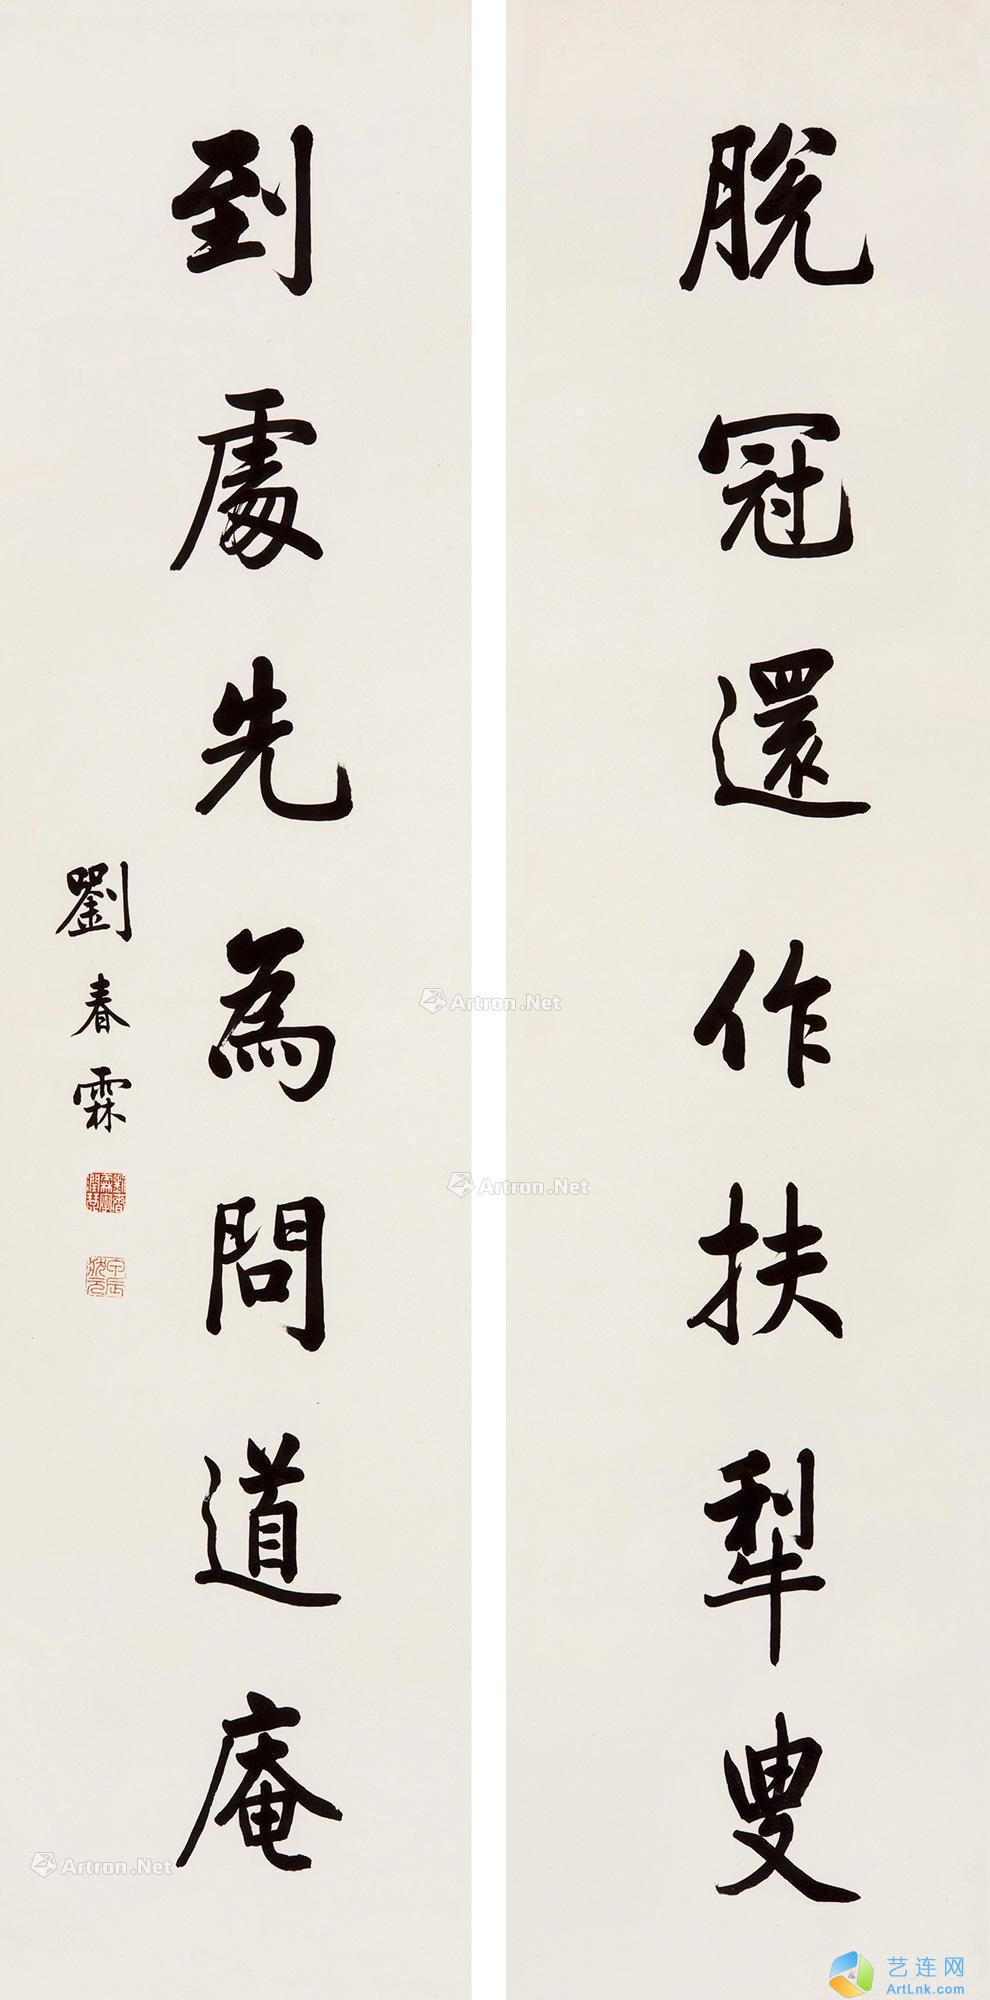 脫冠還作扶犂叟
到處先為問道庵
劉春霖
Artron.Net
Artron.Net
Artron.Net
艺连网
ArtLnk.com